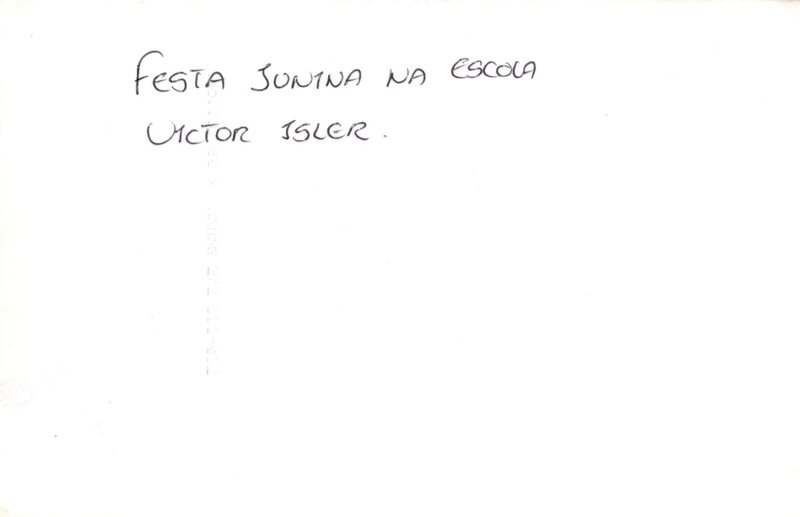 FESTA JUNINA NA ESCOLA
VICTOR ISLER.